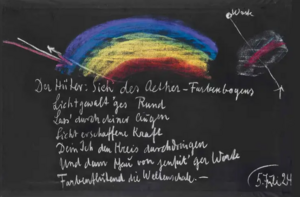 Worte
Der Hüter: Sieh des Aether-Farbenbogens
Lichtgewalt'ges Rund
Lass' durch deiner Augen
Lichterschaffene Kraft
Dein Ich den Kreis durchdringen
Und dann schau von jenseit'ger Warte
Farbenflutend die Weltenschale.—
5. Juli 24